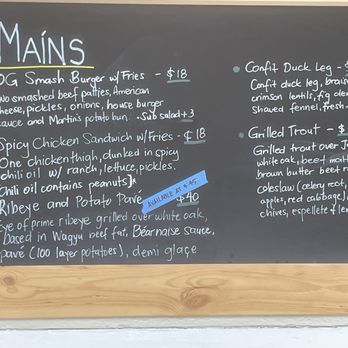 MAINS
OG Smash Burger w/ Fries - $18
two smashed beef patties, American
cheese, pickles, onions, house burger
sauce and Martin's potato bun. Sub salad +3
Spicy Chicken Sandwich w/Fries - $18
One chicken thigh, dunked in spicy
chili oil w/ ranch, lettuce, pickles.
chili oil contains peanuts]*
AVAILABLE AT 4:45
Ribeye and Potato Pavé $40
Eye of prime ribeye grilled over white oak,
based in Wagyu beef fat, Béarnaise sauce,
pavé (100 layer potatoes), demi glaçe
Confit Duck Leg - $
Confit duck leg, brais
crimson lentils, fig de
shaved fennel, fresh
Grilled Trout - $
Grilled trout over J
white oak, beef
brown butter beet
coleslaw (celery root,
apples, red cabbage),
chives, espellete & le